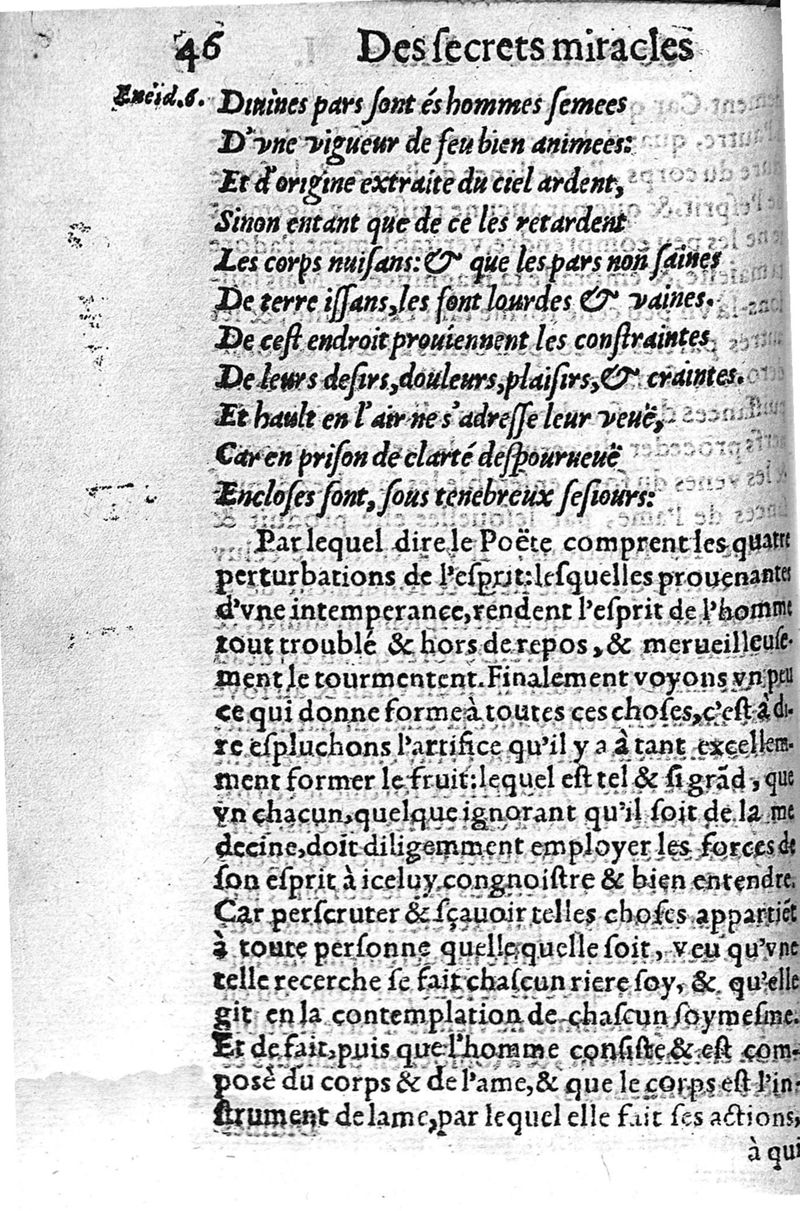 46 Des ſecrets miracles
Eneid.6. Diuines pars ſont és hommes ſemees
D'vne vigueur de feu bien animees:
Et d'origine extraite du ciel ardent,
Sinon entant que de ce les retardent
Les corps nuiſans: & que les pars non ſaines
De terre iſſans, les font lourdes & vaines.
De ceſt endroit prouiennent les conſtraintes
De leurs deſirs, douleurs, plaiſirs, & craintes.
Et hault en l'air ne s'adreſſe leur veuë,
Car en priſon de clarté deſpourueuë
Encloſes ſont, ſous tenebreux ſeſiours:
Par lequel dire le Poëte comprent les quatre
perturbations de l'eſprit: leſquelles prouenantes
d'vne intemperance, rendent l'eſprit de l'homme
tout troublé & hors de repos, & merueilleuſe-
ment le tourmentent. Finalement voyons vn peu
ce qui donne forme à toutes ces choſes, c'eſt à di-
re eſpluchons l'artifice qu'il y a à tant excellem-
ment former le fruit: lequel eſt tel & ſi grãd, que
vn chacun, quelque ignorant qu'il ſoit de la me
decine, doit diligemment employer les forces de
ſon eſprit à iceluy congnoiſtre & bien entendre.
Car perſcruter & ſçauoir telles choſes appartiẽt
à toute perſonne quelle quelle ſoit, veu qu'vne
telle recerche ſe fait chaſcun riere ſoy, & qu'elle
git en la contemplation de chaſcun ſoymeſme.
Et de fait, puis que l'homme conſiſte & eſt com-
poſé du corps & de l'ame, & que le corps eſt l'in-
ſtrument de lame, par lequel elle fait ſes actions,
à qui